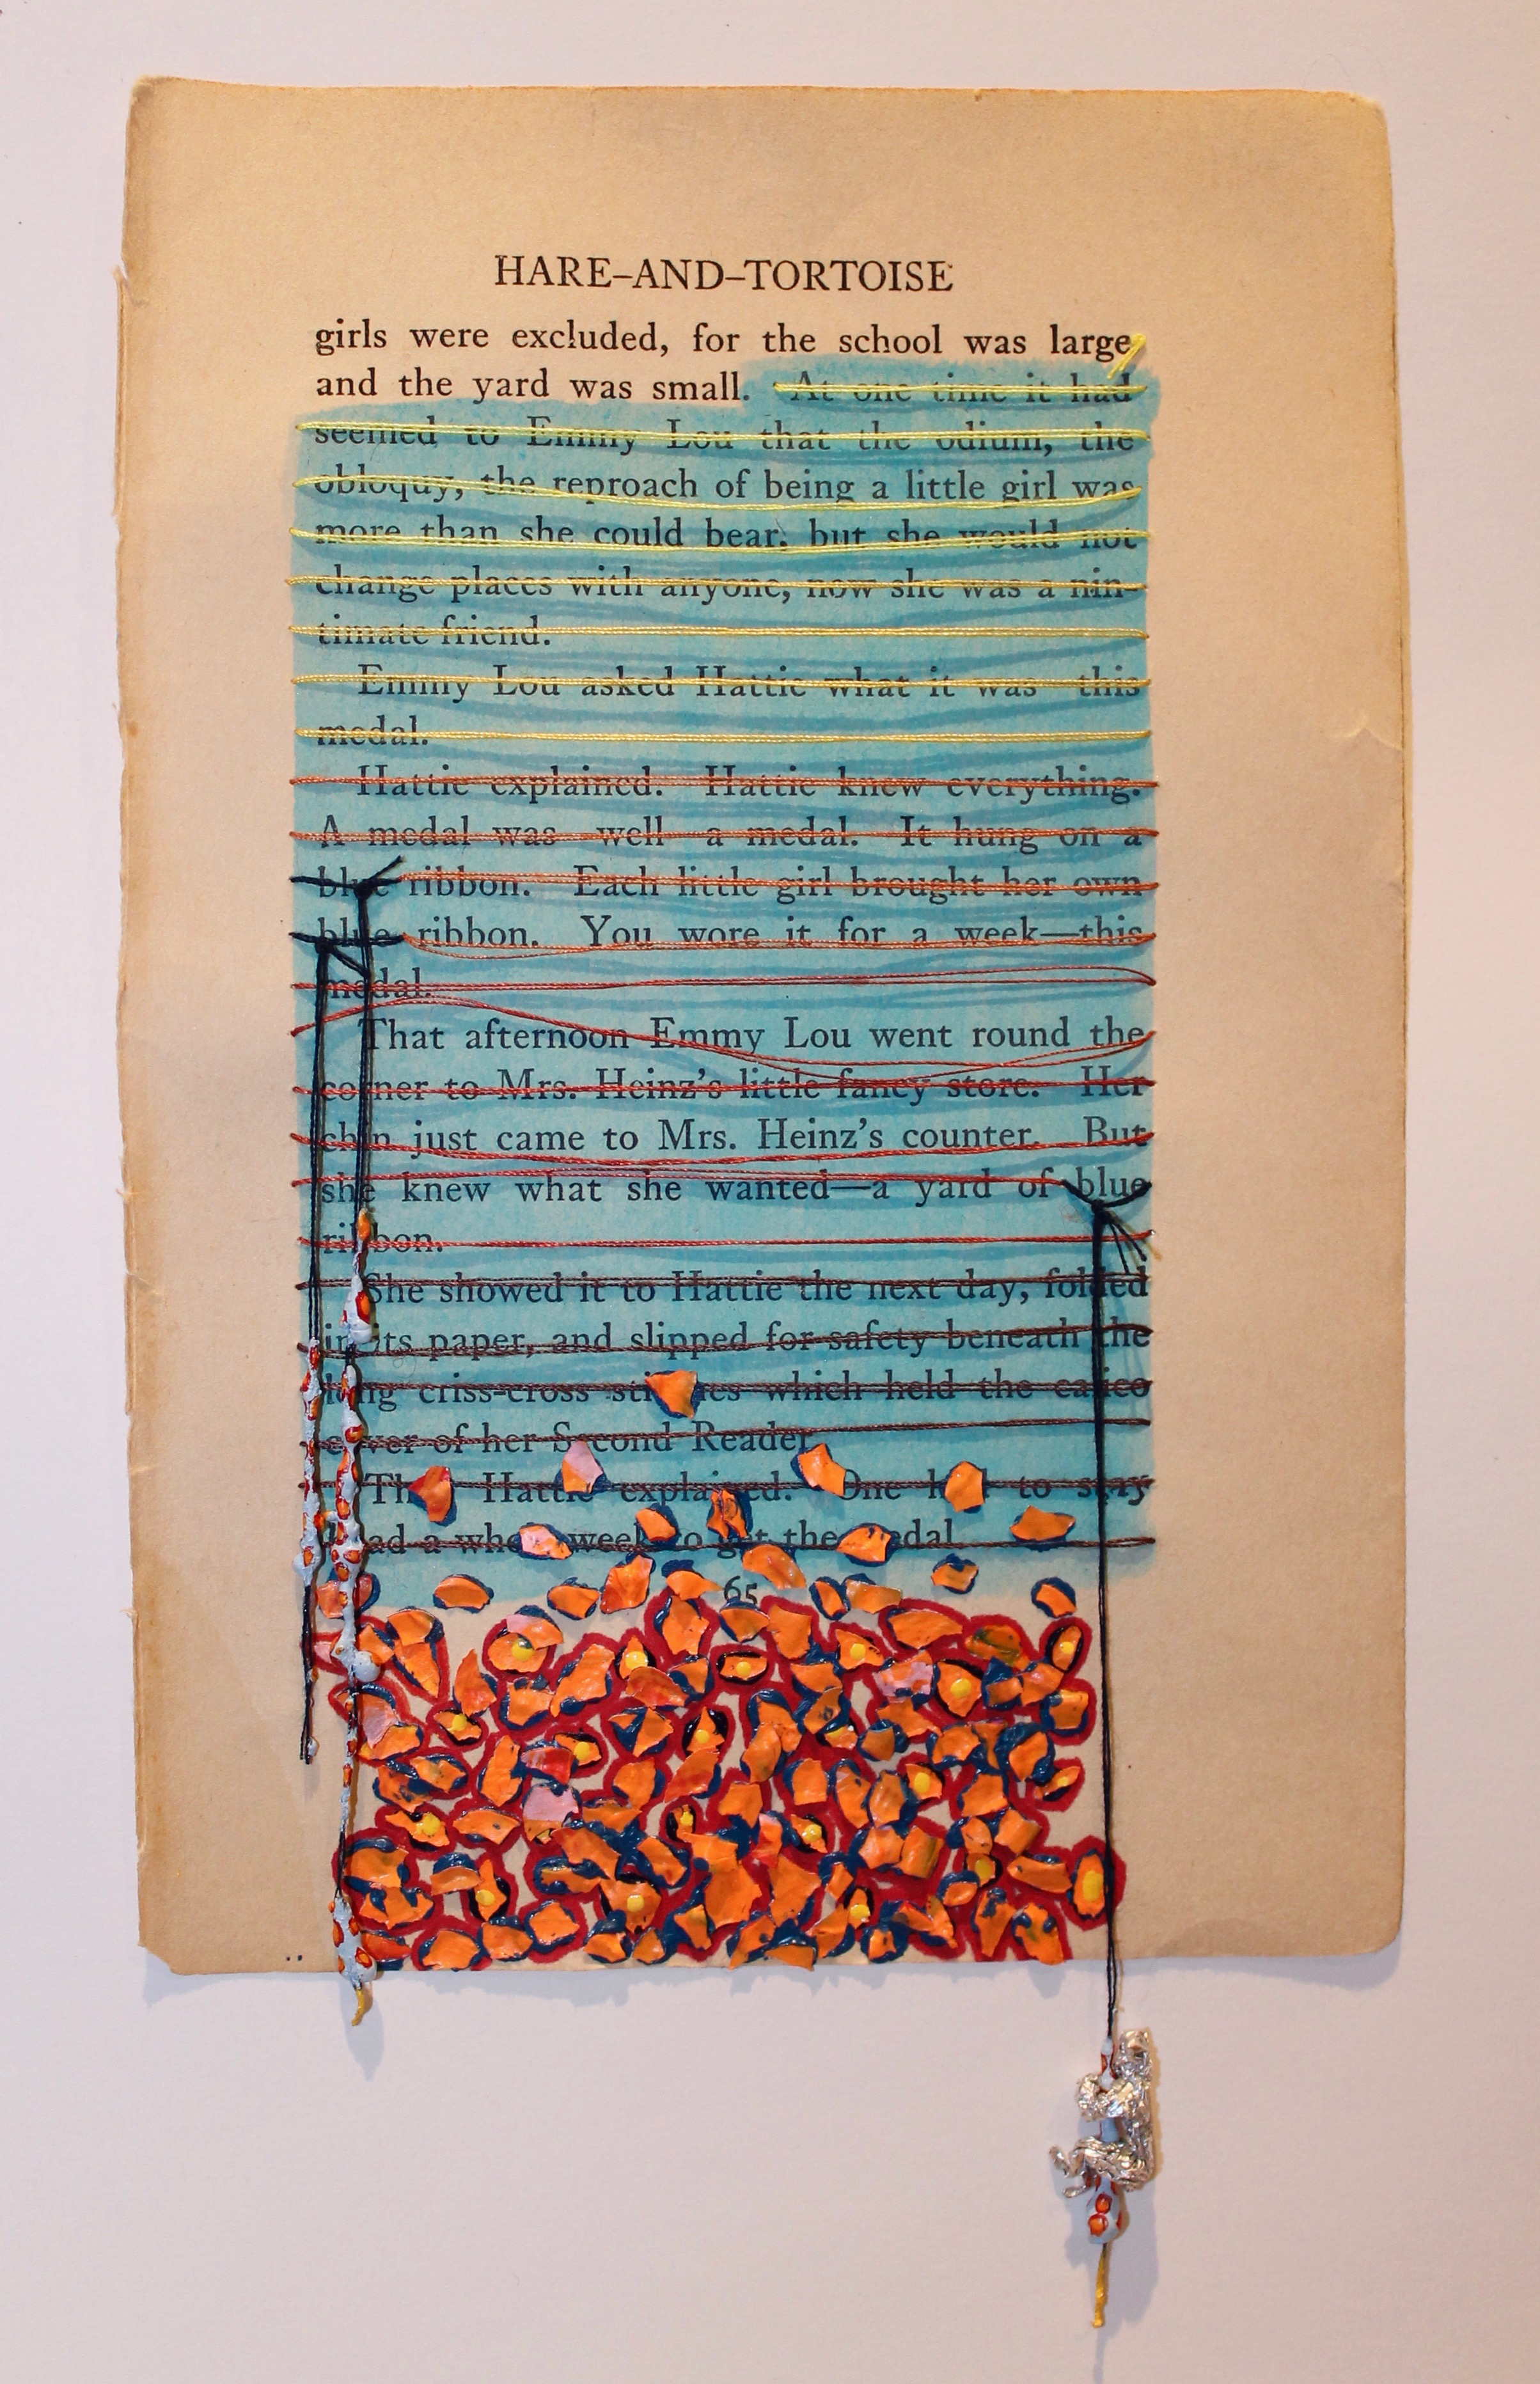 HARE–AND–TORTOISE
girls were excluded, for the school was large
and the yard was small. At one time it had
seemed to Emmy Lou that the odium, the
obloquy, the reproach of being a little girl was
more than she could bear; but she would not
change places with anyone, now she was a nin-
timate friend.
Emmy Lou asked Hattie what it was this
medal.
Hattie explained. Hattie knew everything.
A medal was well a medal. It hung on a
blue ribbon. Each little girl brought her own
blue ribbon. You wore it for a week—this
medal.
That afternoon Emmy Lou went round the
corner to Mrs. Heinz's little fancy store. Her
chin just came to Mrs. Heinz's counter. But
she knew what she wanted—a yard of blue
ribbon.
She showed it to Hattie the next day, folded
in its paper, and slipped for safety beneath the
long criss-cross stitches which held the calico
cover of her Second Reader.
Then Hattie explained. One had to stay
head a whole week to get the medal.
65